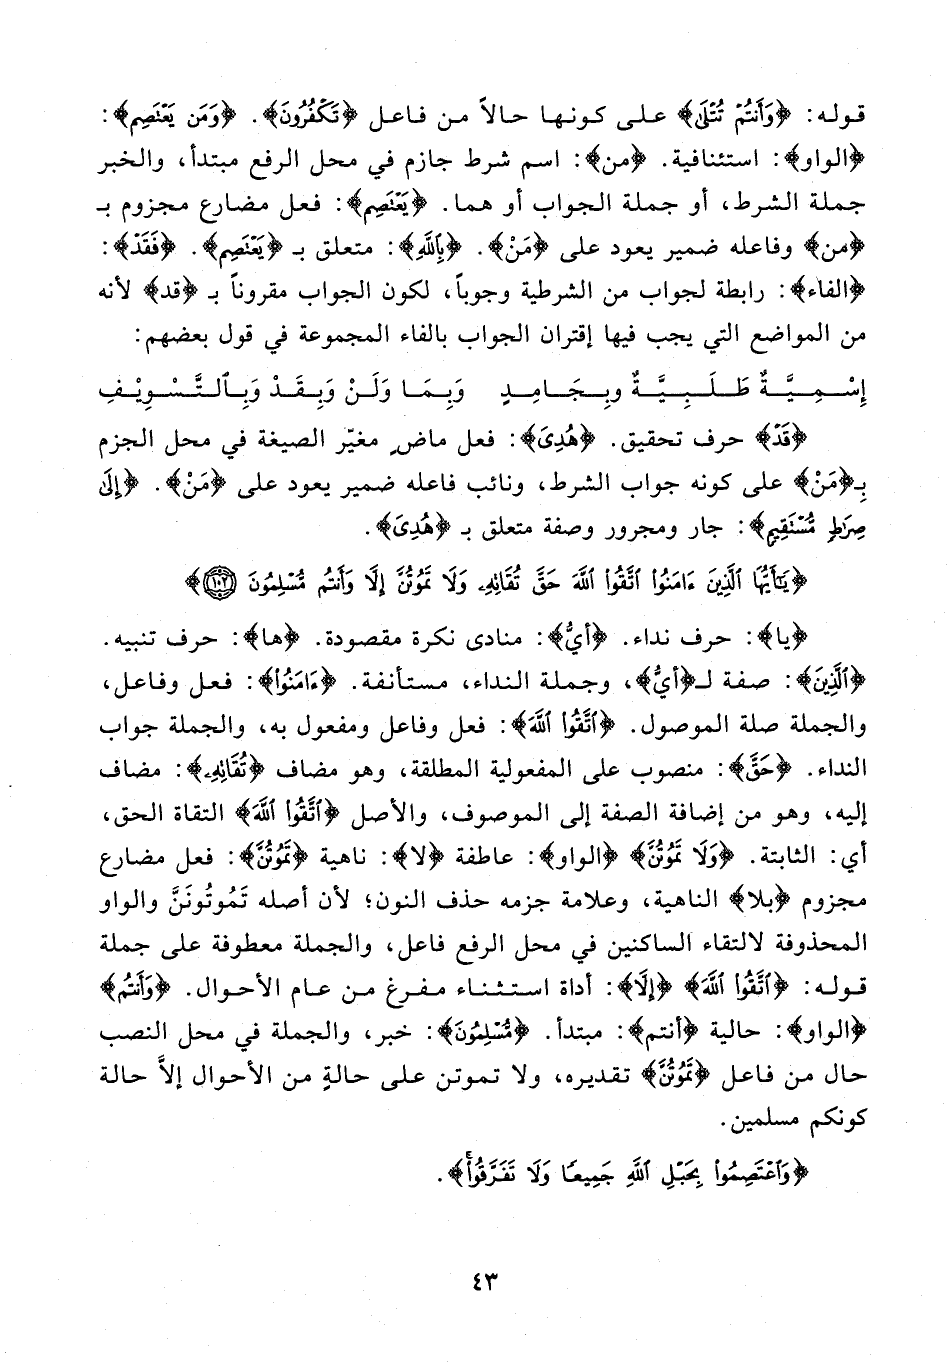 قوله: ﴿وَأَنتُمْ تُتْلَىٰ﴾ على كونها حالاً من فاعل ﴿تَكْفُرُونَ﴾. ﴿وَمَن يَعْتَصِم﴾:
﴿الواو﴾: استئنافية. ﴿من﴾: اسم شرط جازم في محل الرفع مبتدأ، والخبر
جملة الشرط، أو جملة الجواب أو هما. ﴿يَعْتَصِم﴾: فعل مضارع مجزوم بـ
﴿من﴾ وفاعله ضمير يعود على ﴿مَنْ﴾. ﴿بِاللَّهِ﴾: متعلق بـ ﴿يَعْتَصِم﴾. ﴿فَقَدْ﴾:
﴿الفاء﴾: رابطة لجواب من الشرطية وجوباً، لكون الجواب مقروناً بـ ﴿قد﴾ لأنه
من المواضع التي يجب فيها إقتران الجواب بالفاء المجموعة في قول بعضهم:
إِسْـمِـيَّـةٌ طَـلَـبِـيَّـةٌ وبِـجَـامِـدٍ وَبِـمَـا وَلَـنْ وَبِـقَـدْ وَبِـالـتَّـسْـوِيْـفِ
﴿قَدْ﴾ حرف تحقيق. ﴿هُدِىَ﴾: فعل ماضٍ مغيّر الصيغة في محل الجزم
بِـ﴿مَنْ﴾ على كونه جواب الشرط، ونائب فاعله ضمير يعود على ﴿مَنْ﴾. ﴿إِلَىٰ
صِرَٰطٍ مُّسْتَقِيمٍ﴾: جار ومجرور وصفة متعلق بـ ﴿هُدِىَ﴾.
﴿يَٰٓأَيُّهَا ٱلَّذِينَ ءَامَنُوا۟ ٱتَّقُوا۟ ٱللَّهَ حَقَّ تُقَاتِهِۦ وَلَا تَمُوتُنَّ إِلَّا وَأَنتُم مُّسْلِمُونَ ١٠٢﴾
﴿يا﴾: حرف نداء. ﴿أيُّ﴾: منادى نكرة مقصودة. ﴿ها﴾: حرف تنبيه.
﴿ٱلَّذِينَ﴾: صفة لـ﴿أيُّ﴾، وجملة النداء، مستأنفة. ﴿ءَامَنُوا۟﴾: فعل وفاعل،
والجملة صلة الموصول. ﴿ٱتَّقُوا۟ ٱللَّهَ﴾: فعل وفاعل ومفعول به، والجملة جواب
النداء. ﴿حَقَّ﴾: منصوب على المفعولية المطلقة، وهو مضاف ﴿تُقَاتِهِۦ﴾: مضاف
إليه، وهو من إضافة الصفة إلى الموصوف، والأصل ﴿ٱتَّقُوا۟ ٱللَّهَ﴾ التقاة الحق،
أي: الثابتة. ﴿وَلَا تَمُوتُنَّ﴾ ﴿الواو﴾: عاطفة ﴿لا﴾: ناهية ﴿تَمُوتُنَّ﴾: فعل مضارع
مجزوم ﴿بلا﴾ الناهية، وعلامة جزمه حذف النون؛ لأن أصله تَمُوتُونَنَّ والواو
المحذوفة لالتقاء الساكنين في محل الرفع فاعل، والجملة معطوفة على جملة
قوله: ﴿ٱتَّقُوا۟ ٱللَّهَ﴾ ﴿إِلَّا﴾: أداة استثناء مفرغ من عام الأحوال. ﴿وَأَنتُم﴾
﴿الواو﴾: حالية ﴿أنتم﴾: مبتدأ. ﴿مُّسْلِمُونَ﴾: خبر، والجملة في محل النصب
حال من فاعل ﴿تَمُوتُنَّ﴾ تقديره، ولا تموتن على حالةٍ من الأحوال إلاَّ حالة
كونكم مسلمين.
﴿وَٱعْتَصِمُوا۟ بِحَبْلِ ٱللَّهِ جَمِيعًا وَلَا تَفَرَّقُوا۟ۚ﴾.
٤٣